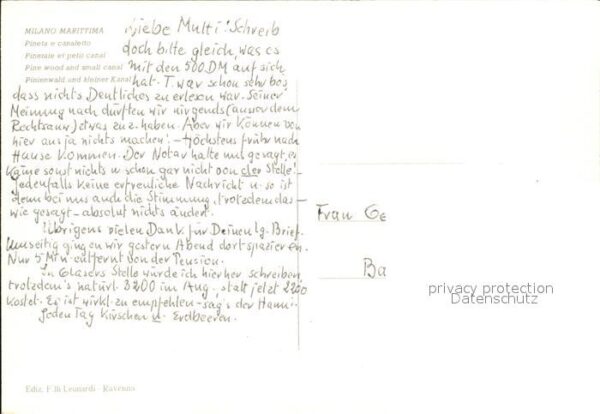 MILANO MARITTIMA
Pineta e canaletto
Pineraie et petit canal
Pine wood and small canal
Pinienwald und kleiner Kanal
Liebe Multi! Schreib
doch bitte gleich, was es
mit den 500 DM auf sich
hat. T. war schon sehr bös,
dass nichts Deutliches zu erlesen war. Seiner
Meinung nach dürften wir nirgends (ausser dem
Rechtsanw.) etwas zu z. haben. Aber wir können von
hier aus ja nichts machen! - Höchstens früher nach
Hause kommen. Der Notar hatte mal gesagt, es
käme sonst nichts u. schon gar nicht von der Stelle!
Jedenfalls keine erfreuliche Nachricht u. so ist
denn bei uns auch die Stimmung, trotzdem das -
wie gesagt - absolut nichts ändert.
Übrigens vielen Dank für Deinen lg. Brief.
Umseitig gingen wir gestern Abend dort spazieren.
Nur 5 Min entfernt von der Pension.
In Glasers Stelle würde ich hierher schreiben,
trotzdem's natürl. 3200 im Aug. statt jetzt 2200
kostet. Es ist wirkl. zu empfehlen - sag's der Hanni.
Jeden Tag Kirschen u. Erdbeeren.
Frau Ge
Ba
privacy protection
Datenschutz
Ediz. F.lli Leonardi - Ravenna